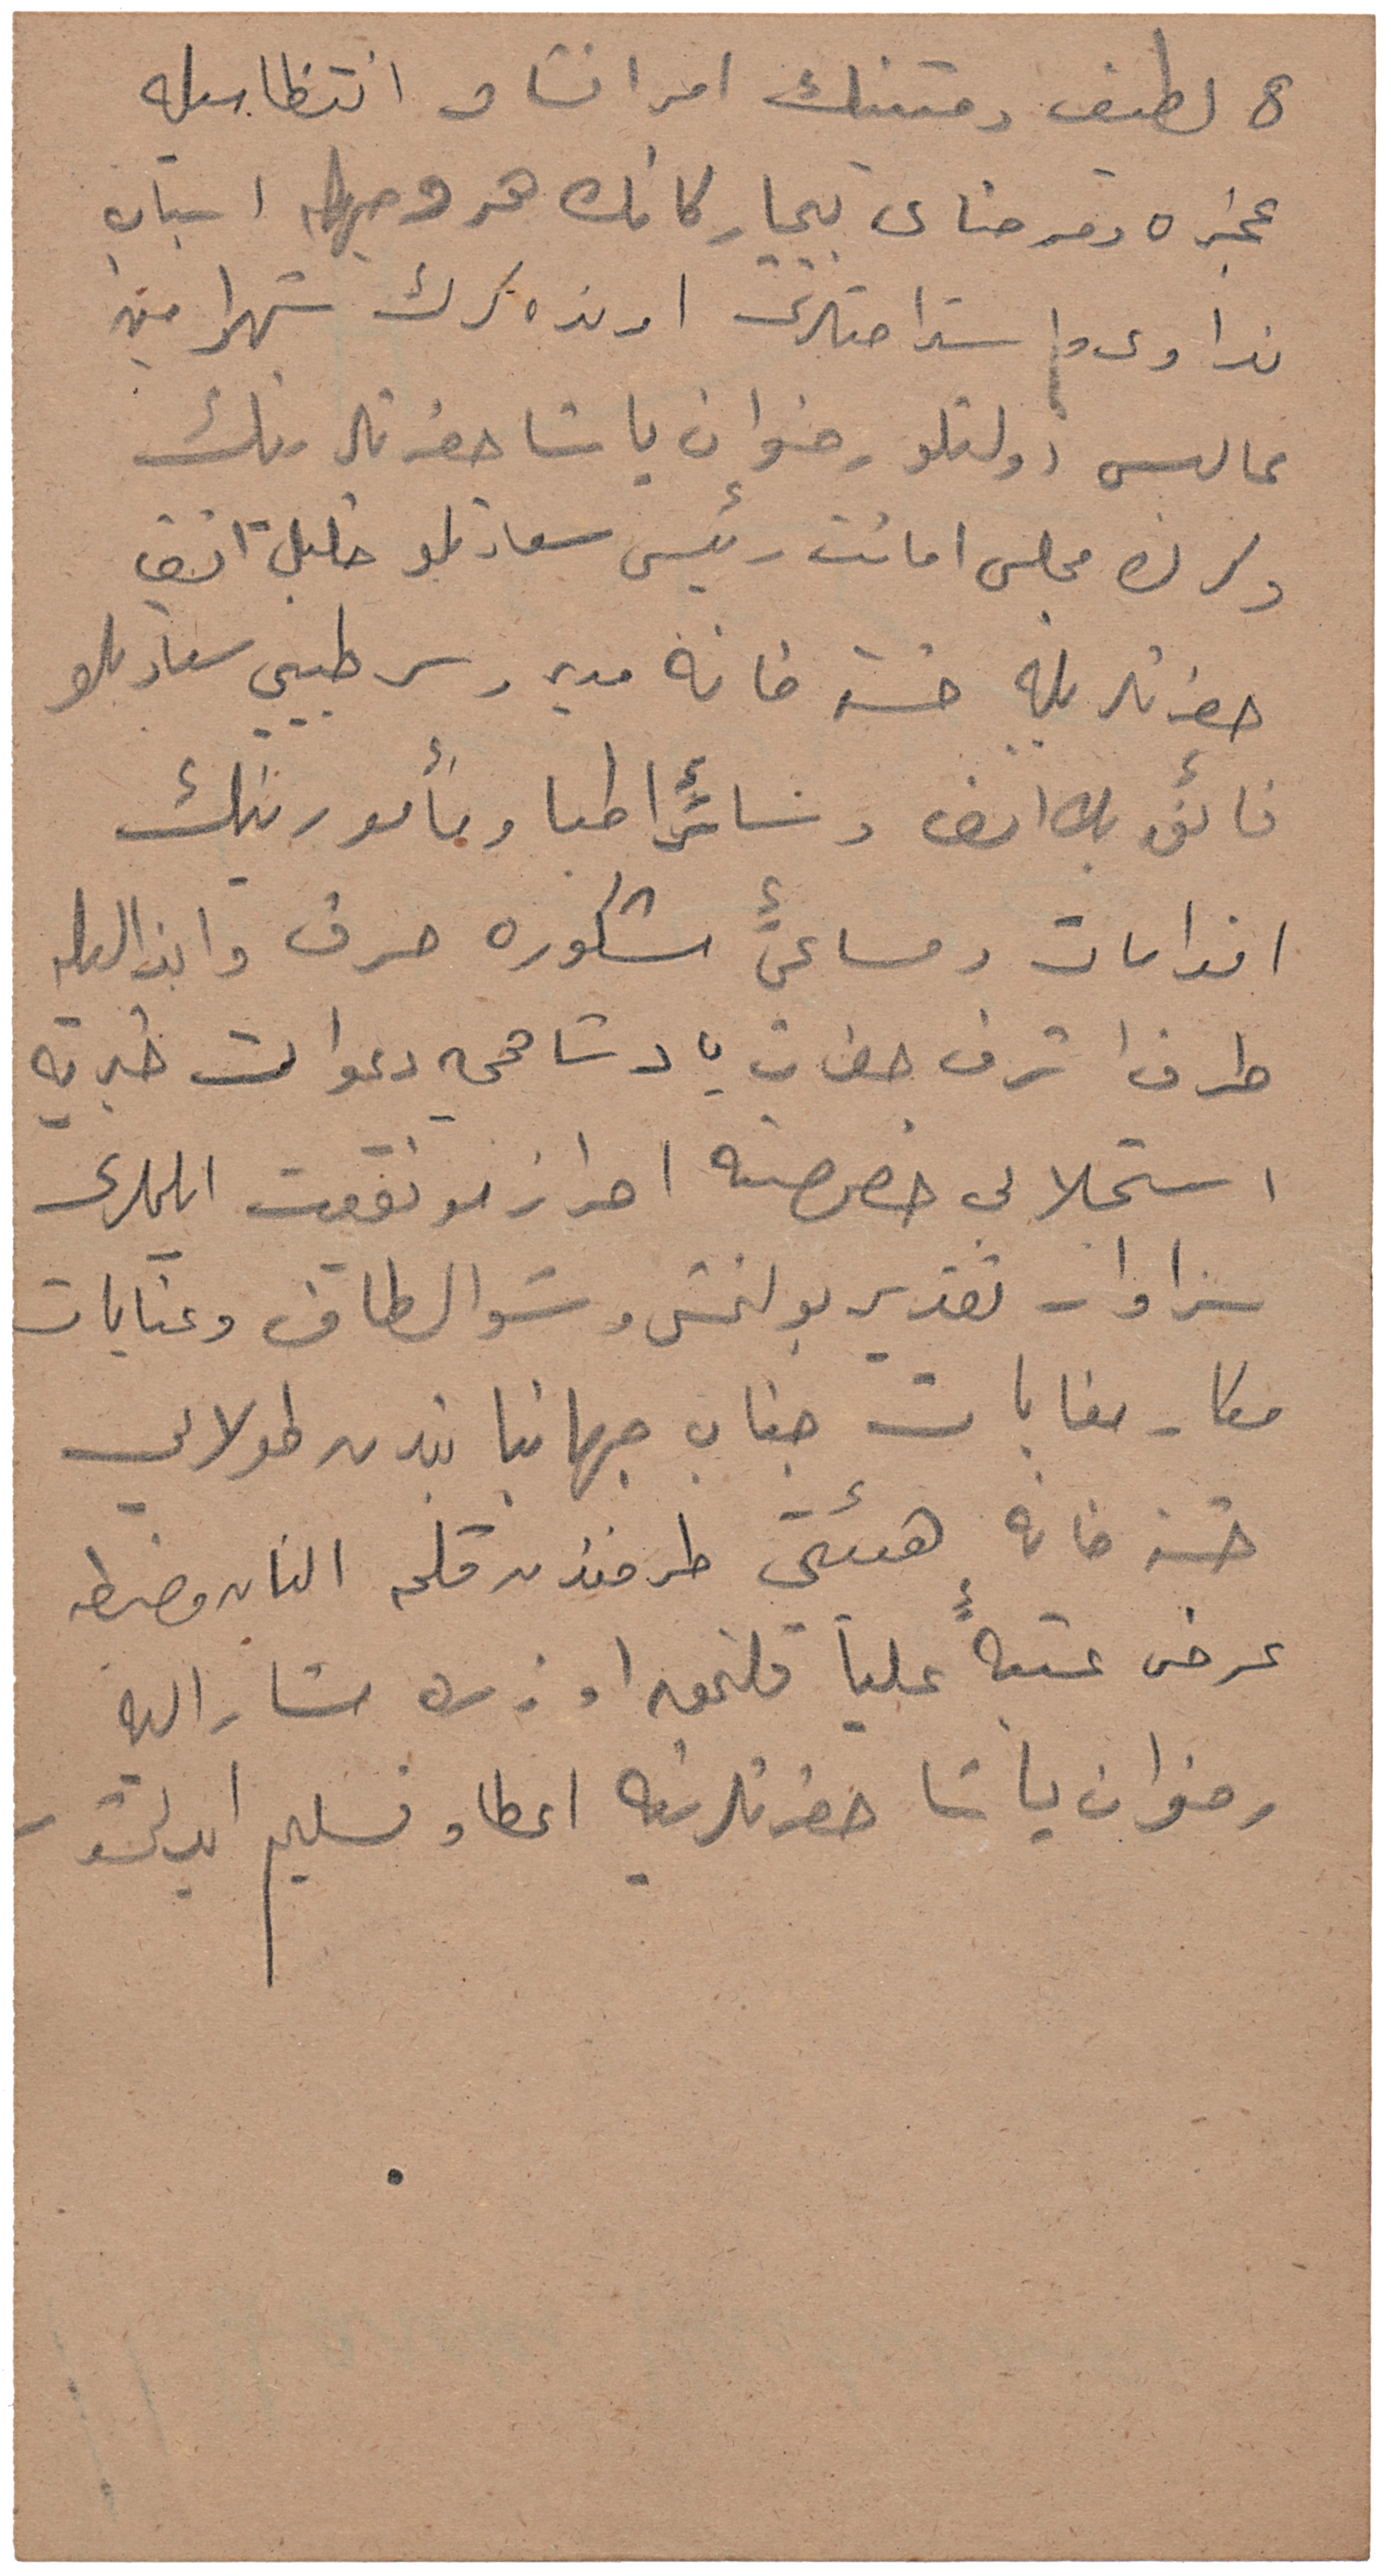 لطیف و متینك امر انشا و انتظامیله
عجزه و مرضای بیچارکانك هر وجهله اسباب
تداوی و استراحتلری اوغرنده کرك شهر امینی
عالیسی دولتلو رضوان پاشا حضرتلرینك
و کرك مجلس امانت رئیسی سعادتلو خلیل افندی
حضرتلریله خسته خانه مدیر و سر طبیبی سعادتلو
فائق بك افندی و سائر اطبا و مأمورینك
اقدامات و مساعیٔ مشکوره صرف و ابذالیله
طرف اشرف حضرت پادشاهی یه دعوات خیریه
استجلابی خصوصنه احراز موفقیت ایلملری
سزاوار تقدیر بولنمش و شو الطاف و عنایات
مکارمغایات جناب جهانبانیدن طولایی
خسته خانه هیئتی طرفندن قلمه النان مضبطه
عرض عتبهٔ علیا قلنمق اوزره مشار الیه
رضوان پاشا حضرتلرینه اعطا و تسلیم ایدلمشدر